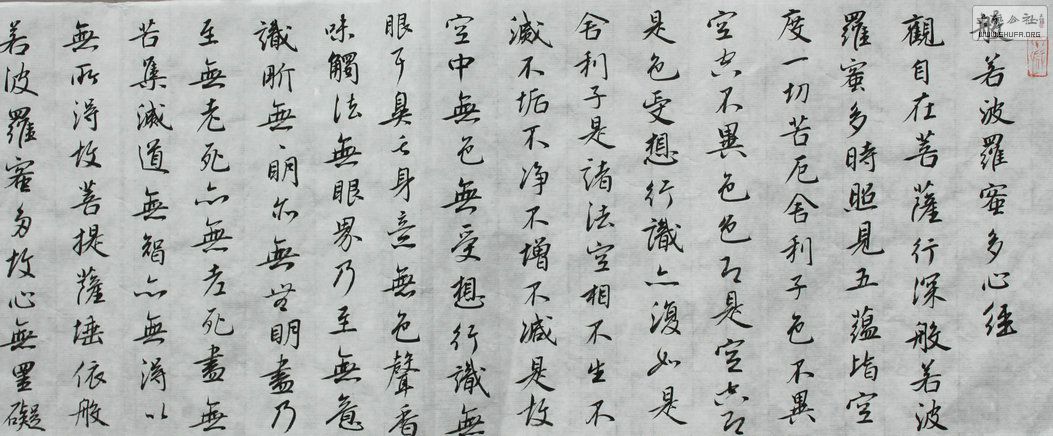 般若波羅蜜多心經
觀自在菩薩行深般若波
羅蜜多時照見五蘊皆空
度一切苦厄舍利子色不異
空空不異色色即是空空即
是色受想行識亦復如是
舍利子是諸法空相不生不
滅不垢不净不增不減是故
空中無色無受想行識無
眼耳鼻舌身意無色聲香
味觸法無眼界乃至無意
識界無、明亦無無明盡乃
至無老死亦無老死盡無
苦集滅道無智亦無得以
無所得故菩提薩埵依般
若波羅蜜多故心無罣礙
公社
WWW.SHUFA.ORG